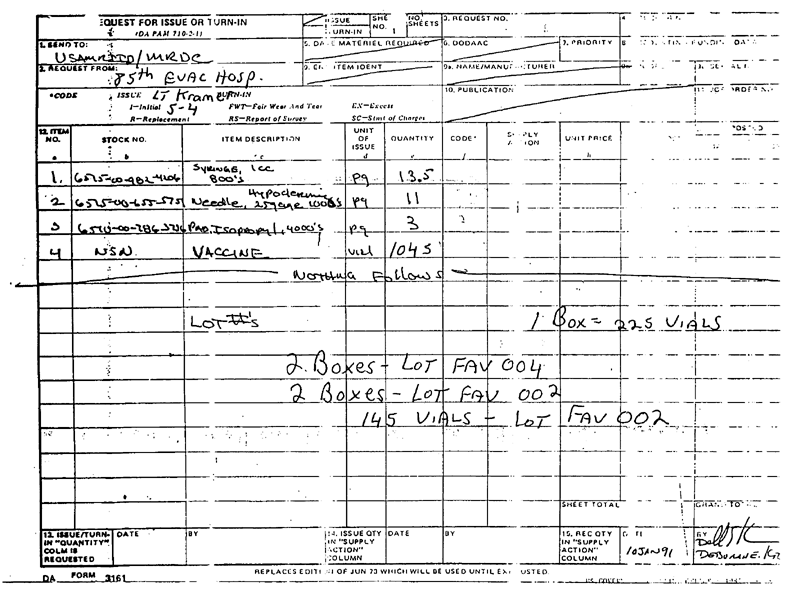 REQUEST FOR ISSUE OR TURN-IN
(DA PAM 710-2-1)
ISSUE
TURN-IN
SHEET NO. 1
NO. SHEETS
3. REQUEST NO.
1. SEND TO:
USAMRIID/MRDC
5. DATE MATERIEL REQUIRED
6. DODAAC
7. PRIORITY
2. REQUEST FROM:
85th EVAC HOSP.
9. END ITEM IDENT
9a. NAME/MANUFACTURER
*CODE
ISSUE LT Kramer
TURN-IN
10. PUBLICATION
I-Initial S-4
FWT-Fair Wear And Tear
EX-Excess
R-Replacement
RS-Report of Survey
SC-Stmt of Charges
12. ITEM NO.
STOCK NO.
ITEM DESCRIPTION
UNIT OF ISSUE
QUANTITY
CODE*
SUPPLY ACTION
UNIT PRICE
POSTED
a b c d e f h
1. SYRINGE, 1cc 800's pg 13.5
2 Needle, Hypodermic 25gage 1000's pg 11
3 Pad, Isopropyl, 4000's pg 3
4 NSN VACCINE vial 1045
Nothing Follows
LOT #'s
1 Box = 225 VIALS
2 Boxes - LOT FAV 004
2 Boxes - LOT FAV 002
145 VIALS - LOT FAV 002
SHEET TOTAL
GRAND TOTAL
13. ISSUE/TURN-IN "QUANTITY" COLM IS REQUESTED
DATE
BY
14. ISSUE QTY IN "SUPPLY ACTION" COLUMN
DATE
BY
15. REC QTY IN "SUPPLY ACTION" COLUMN
10 JAN 91
BY
DA FORM 3161
REPLACES EDITION OF JUN 73 WHICH WILL BE USED UNTIL EXHAUSTED.